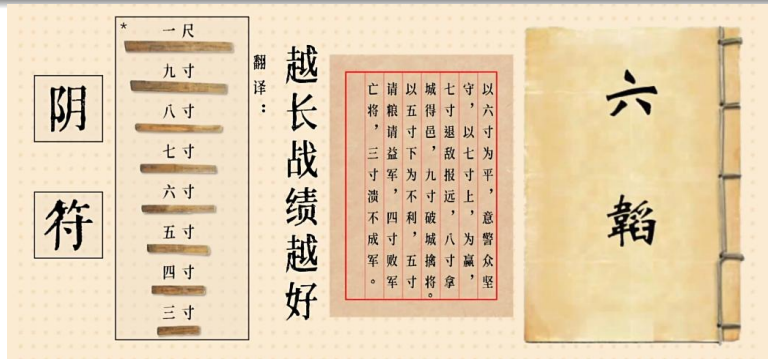 阴符
*
一尺
九寸
八寸
七寸
六寸
五寸
四寸
三寸
翻译：
越长战绩越好
以六寸为平，意警众坚
守，以七寸上，为赢，
七寸退敌报远，八寸拿
城得邑，九寸破城擒将。
以五寸下为不利，五寸
请粮请益军，四寸败军
亡将，三寸溃不成军。
六韬